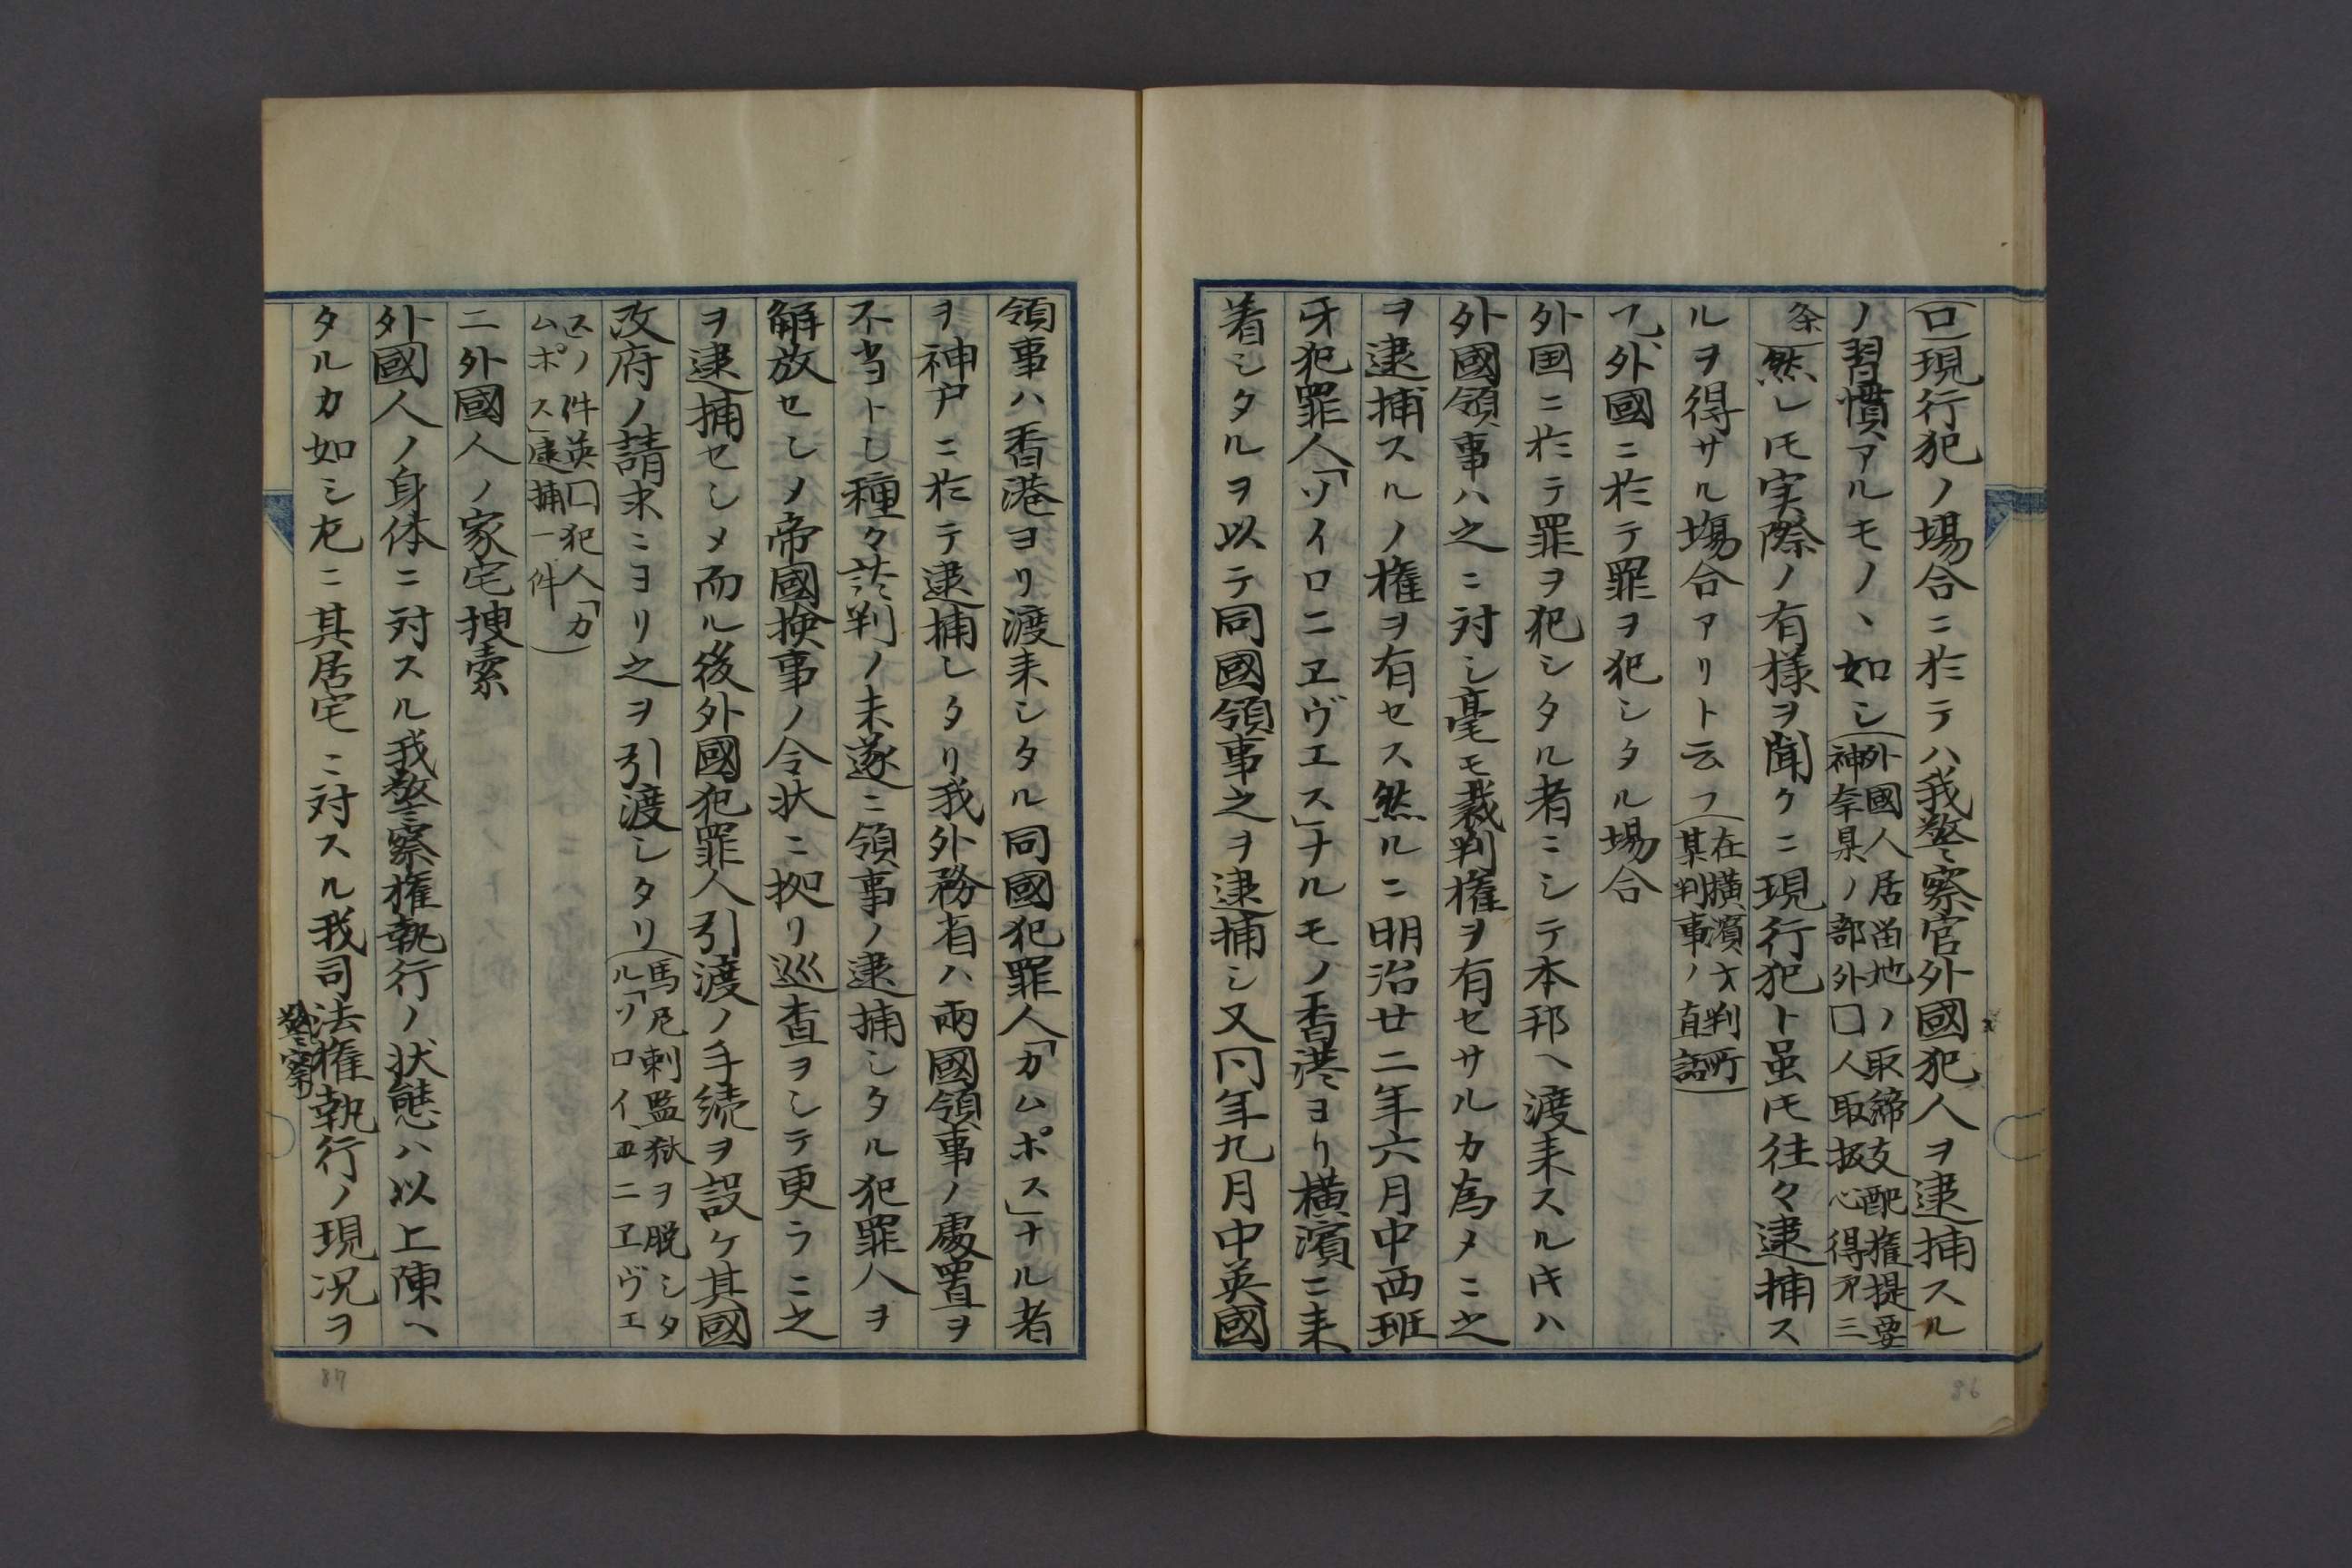 (ロ)現行犯ノ場合ニ於テハ我警察官外國犯人ヲ逮捕スル
ノ習慣アルモノヽ如シ(外國人居留地ノ取締支配権提要
神奈県ノ部外囗人取扱心得第三
条)然レ𪜈実際ノ有様ヲ聞クニ現行犯ト虽𪜈往々逮捕ス
ルヲ得サル塲合アリト云フ(在横濱才判所
某判事ノ直話)
乙、外國ニ於テ罪ヲ犯シタル場合
外国ニ於テ罪ヲ犯シタル者ニシテ本邦ヘ渡来スル𪜈ハ
外國領事ハ之ニ対シ毫モ裁判権ヲ有セサルカ為メニ之
ヲ逮捕スルノ権ヲ有セス然ルニ明治廿二年六月中西班
牙犯罪人「ソイロニヱヴエス」ナルモノ香港ヨリ横濱ニ来
着シタルヲ以テ同國領事之ヲ逮捕シ又仝年九月中英國
領事ハ香港ヨリ渡来シタル同國犯罪人「カムポス」ナル者
ヲ神戸ニ於テ逮捕シタリ我外務省ハ兩國領事ノ處置ヲ
不当トシ種々談判ノ末遂ニ領事ノ逮捕シタル犯罪人ヲ
解放セシノ帝國検事ノ令状ニ拠リ巡査ヲシテ更ラニ之
ヲ逮捕セシメ而ル後外國犯罪人引渡ノ手続ヲ設ケ其國
政府ノ請求ニヨリ之ヲ引渡シタリ(馬尼剌監獄ヲ脱シタ
ル「ソロイ亚ニヱヴエ
ス」ノ件英囗犯人「カ
ムポス」逮捕一件)
二外國人ノ家宅捜索
外國人ノ身体ニ対スル我警察権執行ノ状態ハ以上陳ヘ
タルカ如シ左ニ其居宅ニ対スル我司法権執行ノ現况ヲ
警察
86
87